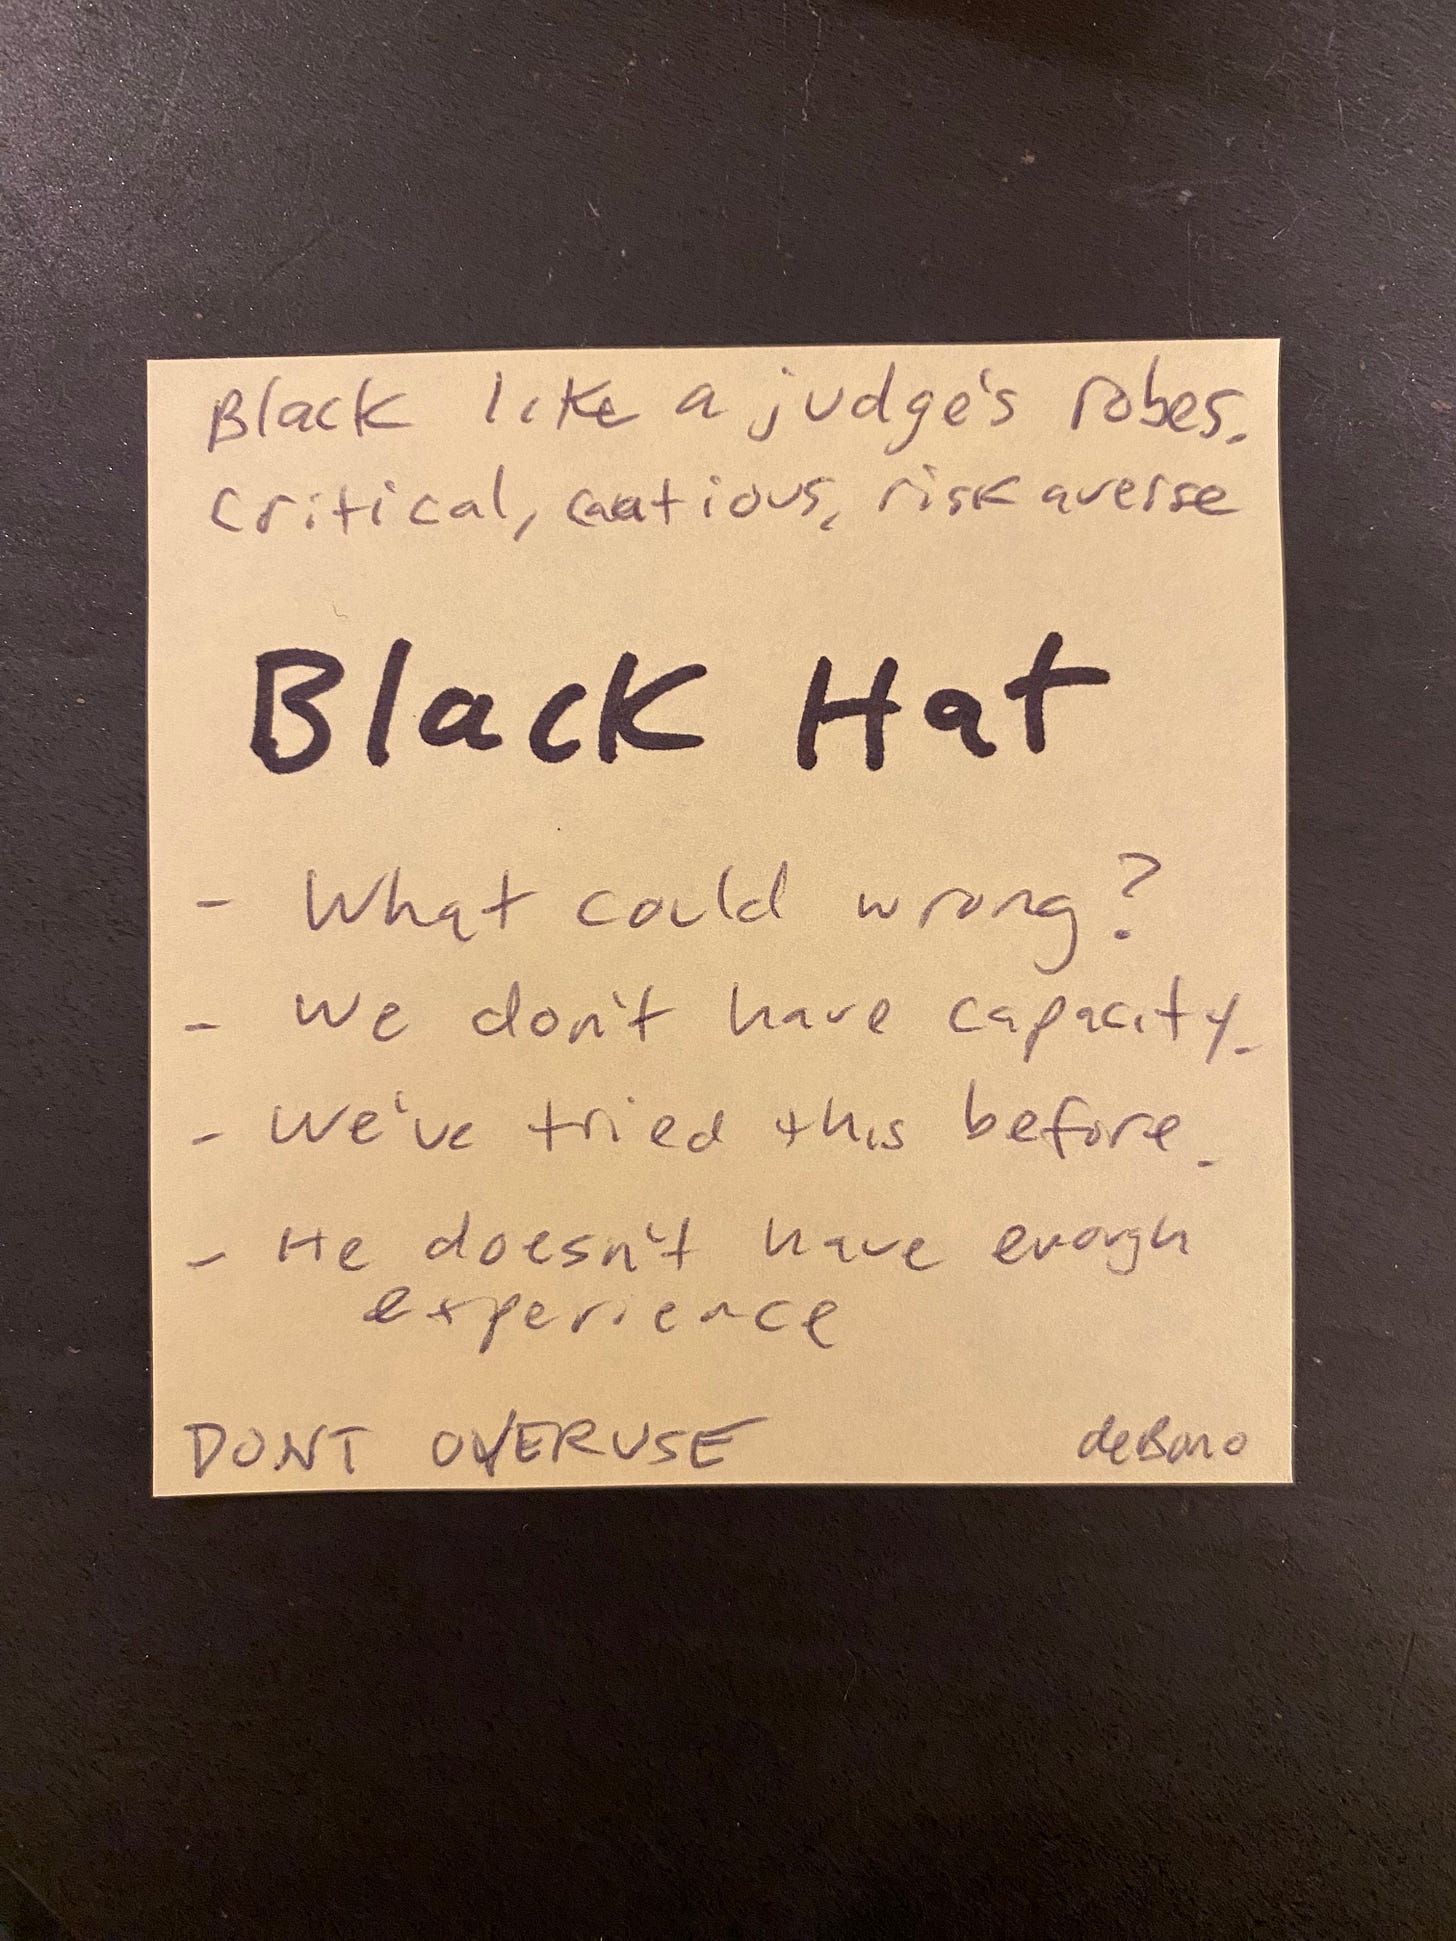 Black like a judge's robes.
critical, cautious, risk averse
Black Hat
- What could wrong?
- We don't have capacity.
- We've tried this before.
- He doesn't have enough
experience
DONT OVERUSE
deBono